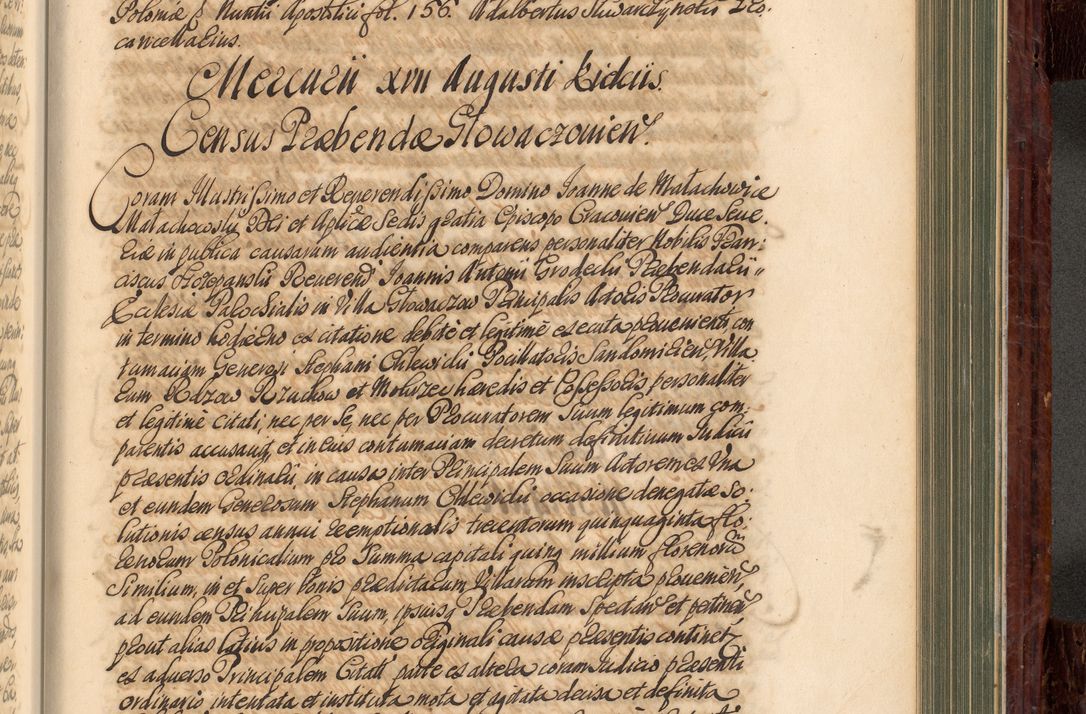 Poloniæ p Nuntii Apostolici fol. 156. Adalbertus
cancellarius.
Mercurii xvii Augusti Kielciis.
Census Præbendæ Głowaczouien
Coram Illustrissimo et Reverendissimo Domino Ioanne de Małachowice
Małachowski Dei et Aplicæ Sedis gratia Episcopo Cracouien Duce Seue,
riæ in publica causarum audientia comparens personaliter Nobilis Fran:
ciscus Reuerendi Ioannis Antonii Grodecki Præbendarii
Ecclesiæ Parochialis in Villa Głowaczow Principalis Actoris Procurator
in termino hodierno ex citatione debite et legitimè executa proueniente, con
tumaciam Generosi Stephani Chlewicki Pocillatoris Sandomirien, Villa
rum Rdzow Rzuchow et Mokrzec hæredis et Possessoris personaliter
et legitimè citati, nec per se, nec per Procuratorem suum legitimum com
parentis accusauit, et in eius contumaciam decretum definitiuum Iudicii
præsentis ordinarii in causa inter Principalem suum Actorem ex vna
et eundem Generosum Stephanum Chlewicki occasione denegatæ so:
lutionis census annui reemptionalis trecentorum quinquaginta flo:
renorum Polonicalium pro summa capitali quinq millium florenorũ
similium, in et super bonis prædictarum Villarum inscripta prouenien
ad eundem Principalem suum, ipsiusq Præbendam spectan et pertinen
prout alias latius in propositione originali causæ præsentis continet,
ex aduerso Principalem Citati parte ex altera coram Iudicio præsenti
ordinario intentata et instituta mota et agitata decisa et definita